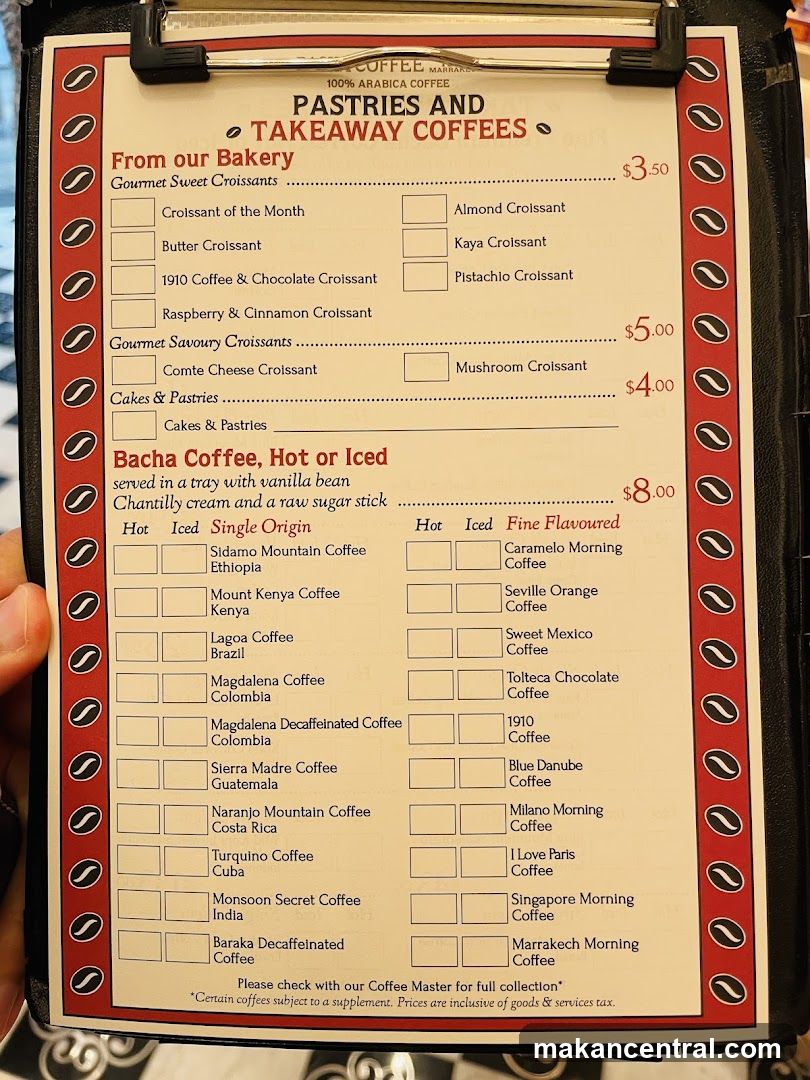 COFFEE
100% ARABICA COFFEE
PASTRIES AND
TAKEAWAY COFFEES
From our Bakery
Gourmet Sweet Croissants $3.50
Croissant of the Month
Almond Croissant
Butter Croissant
Kaya Croissant
1910 Coffee & Chocolate Croissant
Pistachio Croissant
Raspberry & Cinnamon Croissant
Gourmet Savoury Croissants $5.00
Comte Cheese Croissant
Mushroom Croissant
Cakes & Pastries $4.00
Cakes & Pastries
Bacha Coffee, Hot or Iced
served in a tray with vanilla bean
Chantilly cream and a raw sugar stick $8.00
Hot Iced Single Origin
Sidamo Mountain Coffee
Ethiopia
Mount Kenya Coffee
Kenya
Lagoa Coffee
Brazil
Magdalena Coffee
Colombia
Magdalena Decaffeinated Coffee
Colombia
Sierra Madre Coffee
Guatemala
Naranjo Mountain Coffee
Costa Rica
Turquino Coffee
Cuba
Monsoon Secret Coffee
India
Baraka Decaffeinated
Coffee
Hot Iced Fine Flavoured
Caramelo Morning
Coffee
Seville Orange
Coffee
Sweet Mexico
Coffee
Tolteca Chocolate
Coffee
1910
Coffee
Blue Danube
Coffee
Milano Morning
Coffee
I Love Paris
Coffee
Singapore Morning
Coffee
Marrakech Morning
Coffee
Please check with our Coffee Master for full collection*
*Certain coffees subject to a supplement. Prices are inclusive of goods & services tax.
makancentral.com